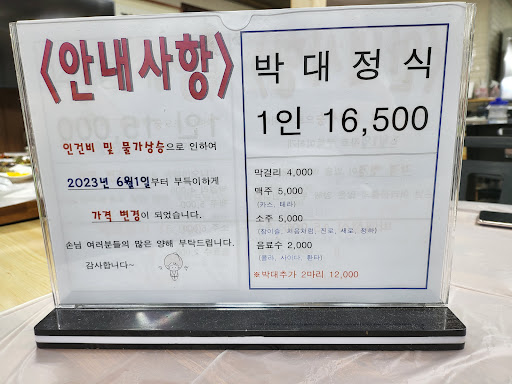 <안내사항>
인건비 및 물가상승으로 인하여
2023년 6월1일부터 부득이하게
가격 변경이 되었습니다.
손님 여러분들의 많은 양해 부탁드립니다.
감사합니다~
박 대 정 식
1인 16,500
막걸리 4,000
맥주 5,000
(카스, 테라)
소주 5,000
(참이슬, 처음처럼, 진로, 새로, 청하)
음료수 2,000
(콜라, 사이다, 환타)
※박대추가 2마리 12,000